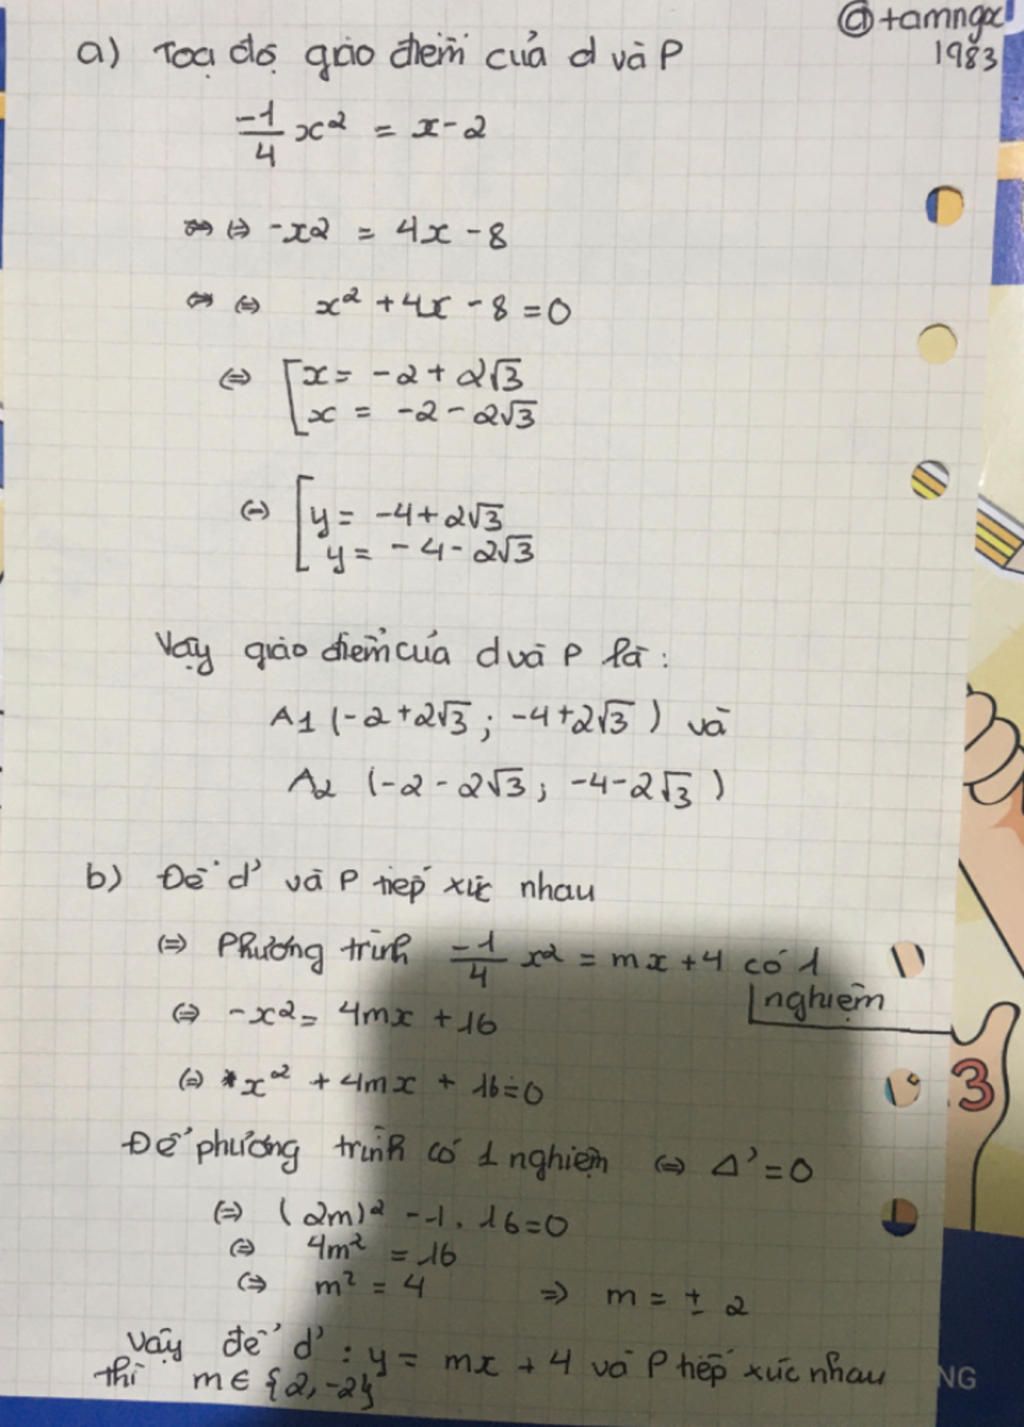 @tamngoc
1983
a) Toạ độ giao điểm của d và P
-1/4 x² = x-2
⇔ -x2 = 4x - 8
⇔ x² + 4x - 8 = 0
⇔ [x = -2 + 2√3
x = -2 - 2√3
⇔ [y = -4 + 2√3
y = -4 - 2√3
Vậy giao điểm của d và P là:
A1 (-2 + 2√3 ; -4 + 2√3 ) và
A2 (-2 - 2√3 ; -4 - 2√3 )
b) Để d' và P tiếp xúc nhau
⇔ Phương trình -1/4 x² = mx + 4 có 1
nghiệm
⇔ -x² = 4mx + 16
⇔ x² + 4mx + 16 = 0
Để phương trình có 1 nghiệm ⇔ Δ' = 0
⇔ (2m)² - 1 . 16 = 0
⇔ 4m² = 16
⇔ m² = 4 ⇒ m = ± 2
Vậy để d' : y = mx + 4 và P tiếp xúc nhau
thì m ∈ {2, -2}
3
NG